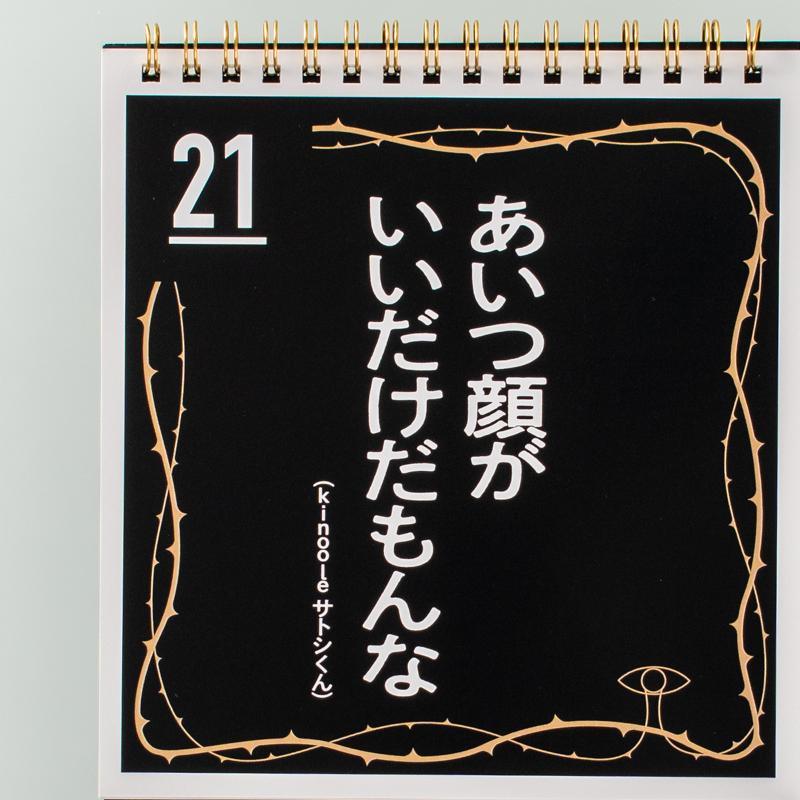 21
あいつ顔が
いいだけだもんな
(kinooleサトシくん)